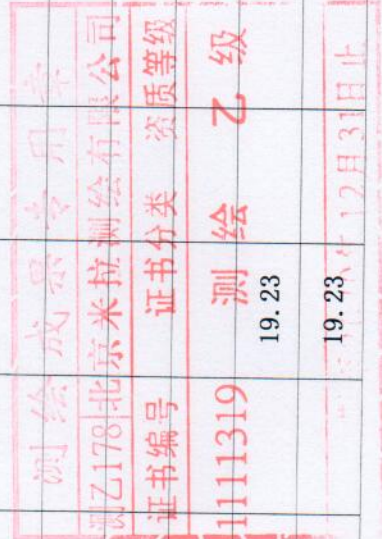 测绘成果专用章
测乙178 北京米拉测绘有限公司
证书编号 证书分类 资质等级
1111319 测绘 乙级
19.23
19.23
12月31日止